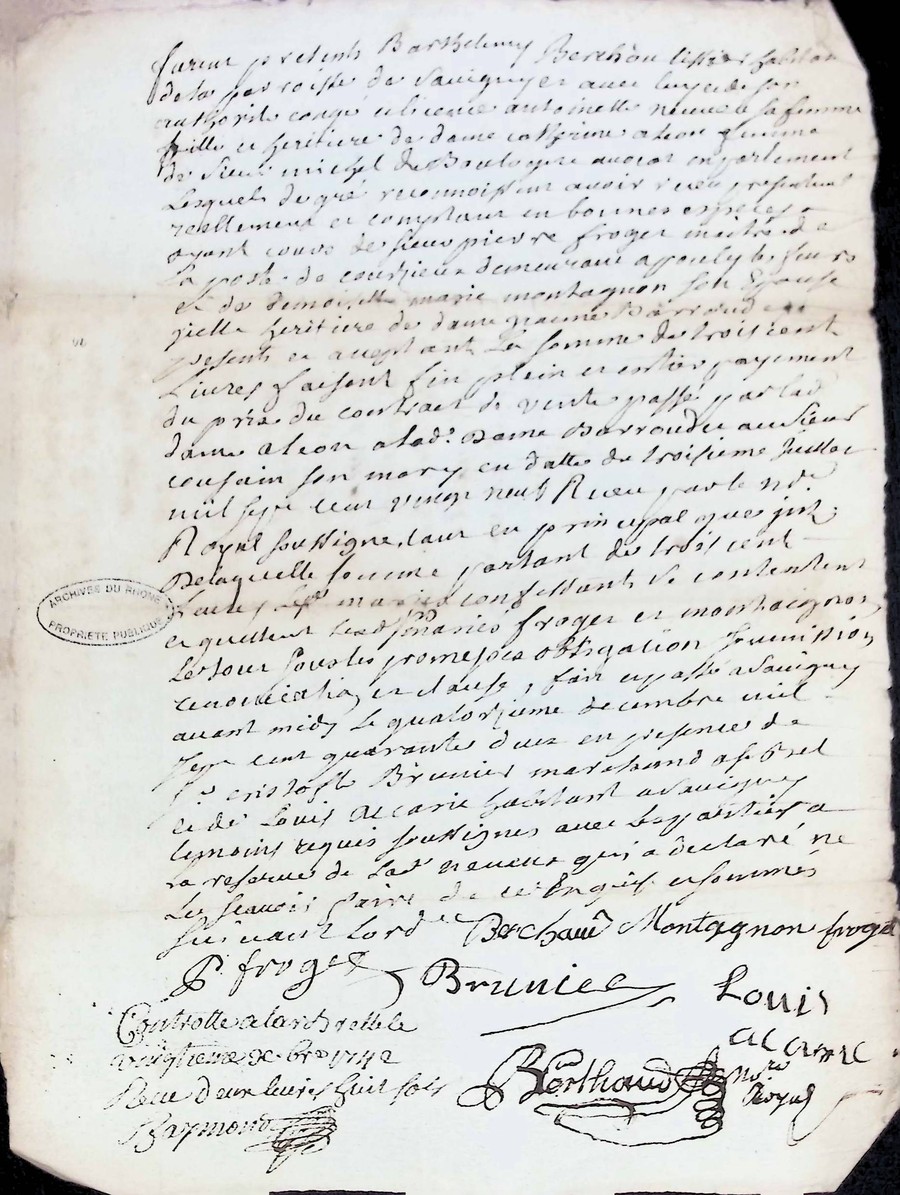 furent presents Barthelemy Berchou tissier habitan
de la parroisse de Savigny et avec luy et de son
authorité congé et licence antoinette neveu sa femme
fille et heritiere de dame catherine aleon femme
de sieur michel de Boulogne avocat en parlement
Lesquels de gré reconnoissent avoir receu presentement
reellement et comptant en bonnes especes
ayant cours de sieur pierre froger maitre de
la poste de courzieu demeurant a
et de demoiselle marie montagnon son Epouse
ycelle heritiere de dame Barroud
presents et acceptant La somme de trois cent
Livres faisant fin plein et entier payement
du prix du contract de vente passé par lad
dame aleon a lad. dame Barroud et au sieur
son mary en datte du troisieme Juillet
mil sept cent vingt neuf Receu par le no.re
Royal soussigne, tant en principal que
De laquelle somme partant de trois cent
Livres maries confessants se contentent
et quittent lesd. maries froger et montaignon
Le tout sous les promesses obligation soumission
renonciation et clauses, fait et passé a Savigny
avant midy Le quatorzieme decembre mil
sept cent quarante deux en presence de
S.r cristofle Brunier marchand
et de Louis accarie habitant a Savigny
temoins requis soussignes avec les parties a
la reserve de lad. neveu qui a declaré ne
Le scavoir faire de ce Enquis et sommés
suivant Lord.ce Berchaud Montagnon froge
P. froger Brunier Louis
accarie
Controllé a larbrelle le
vingtieme X.bre 1742
Receu deux livres huit sols
Raymond
Berthaud No.re
Royal
ARCHIVES DU RHONE
PROPRIETE PUBLIQUE